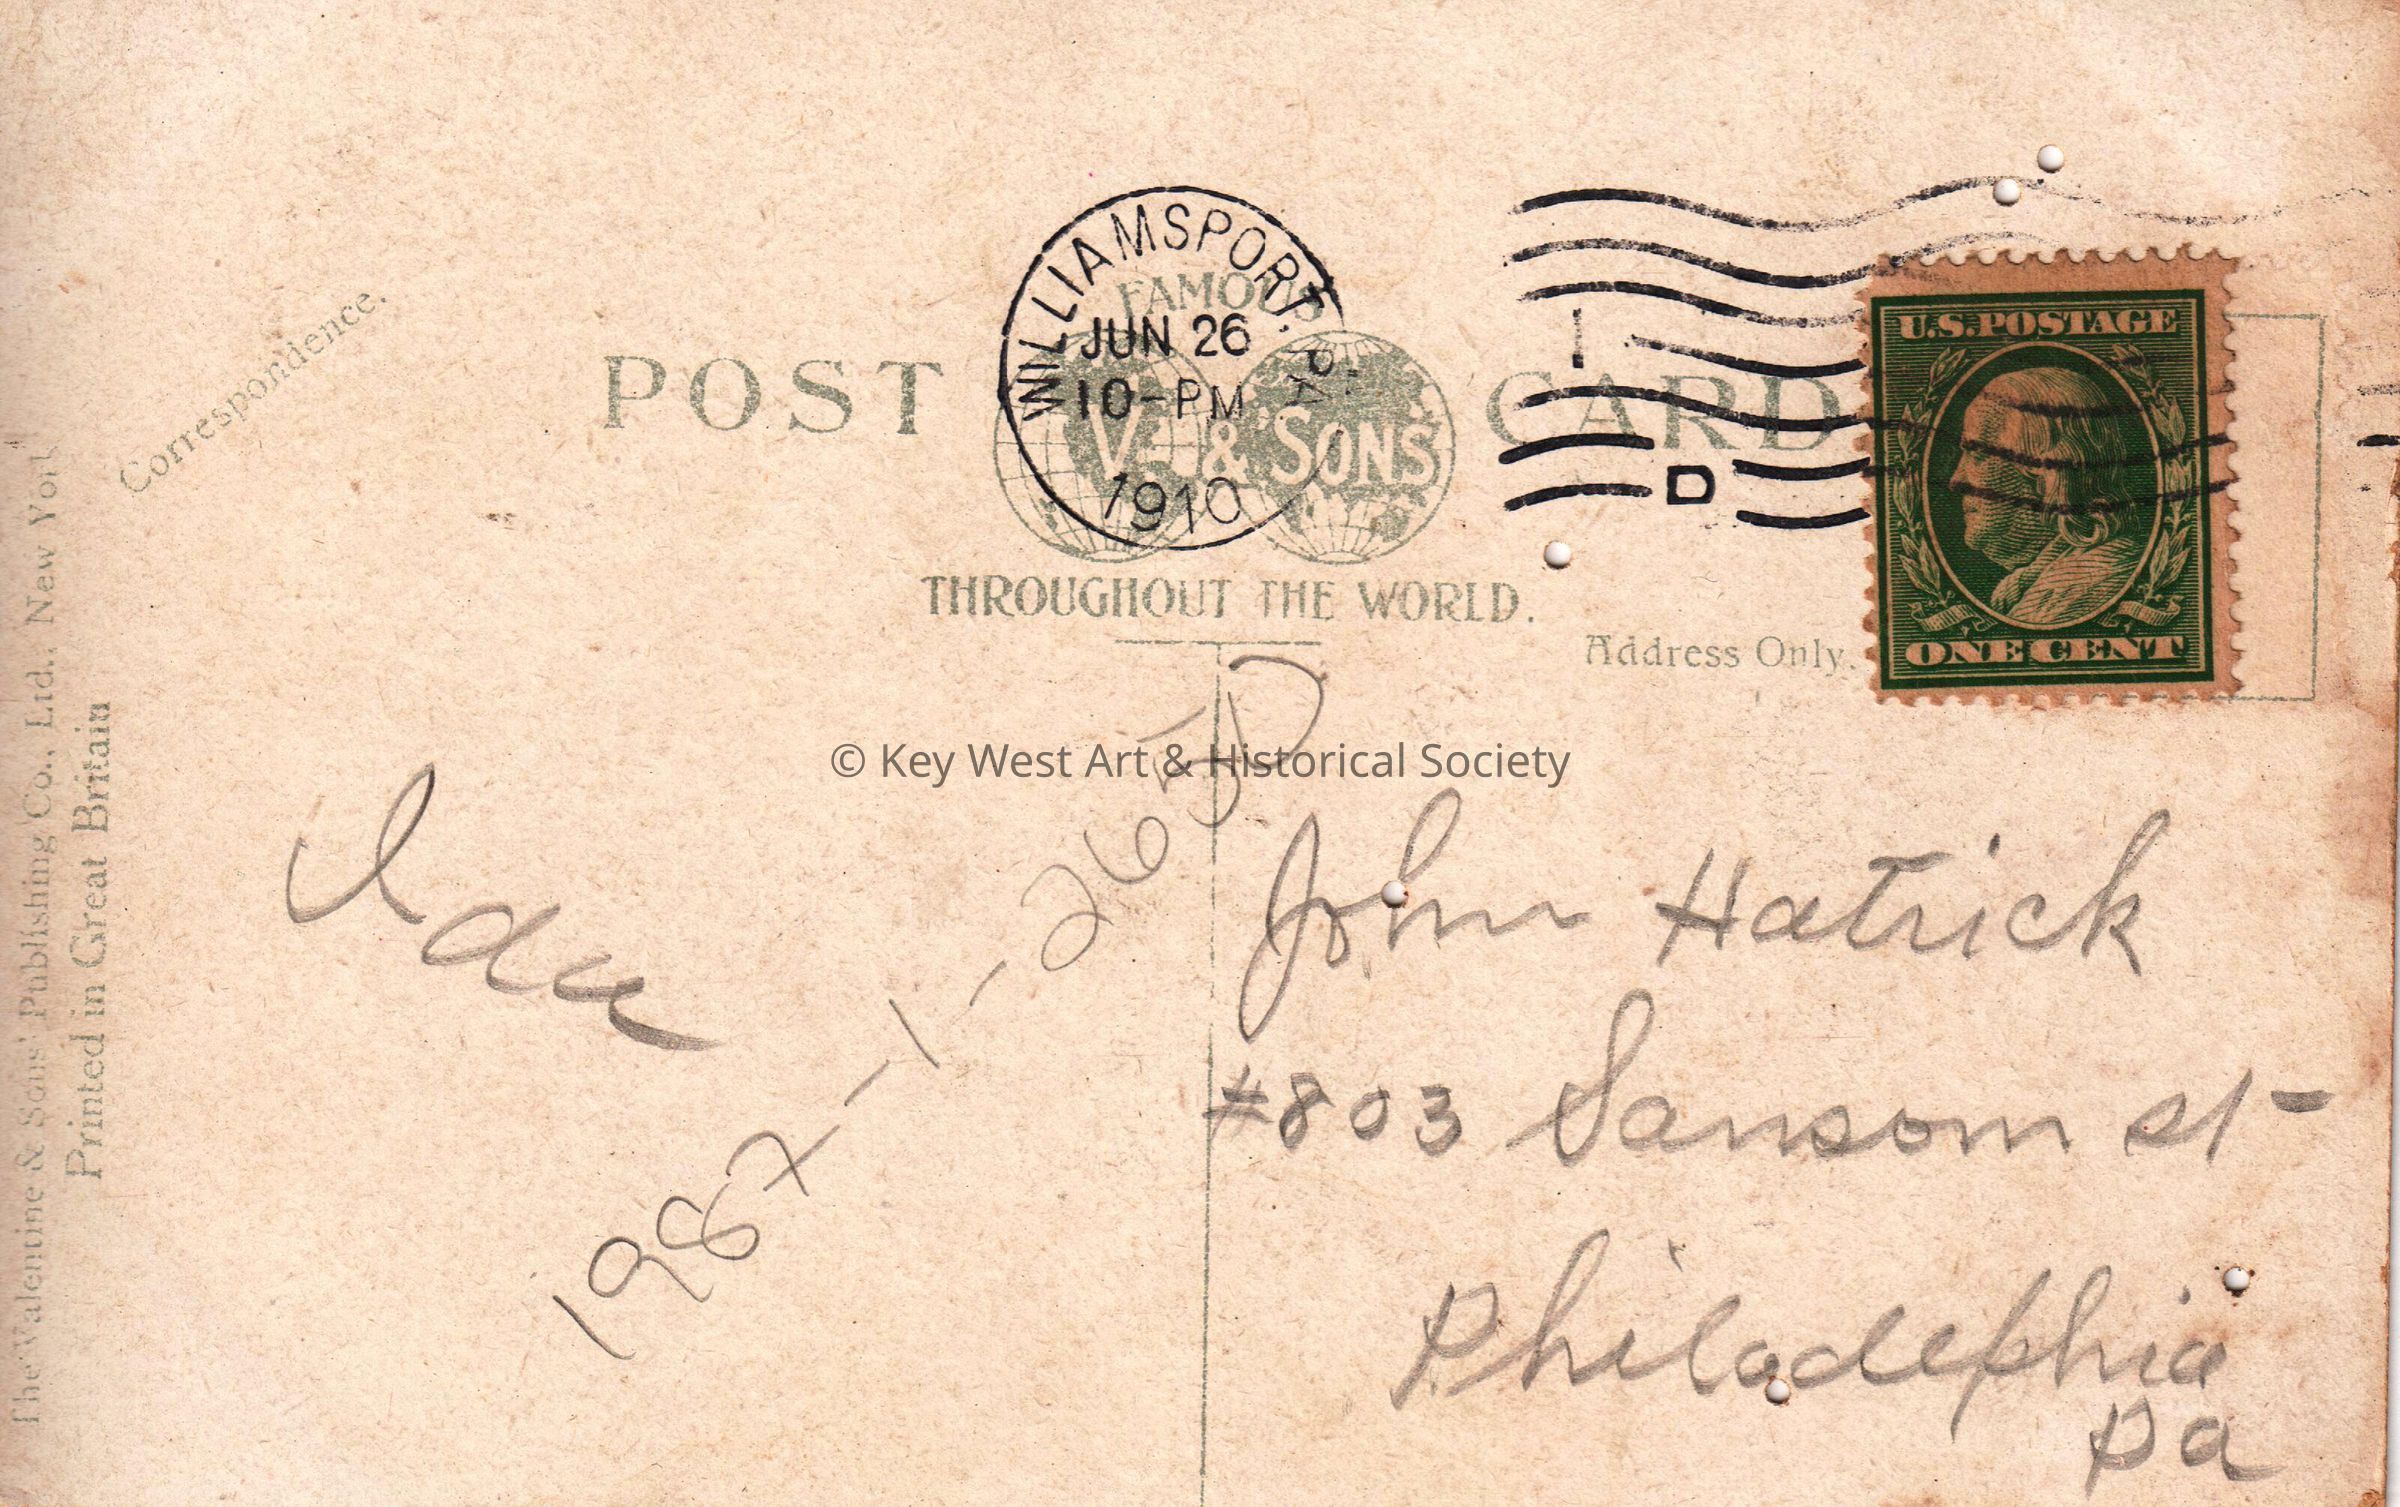 WILLIAMSPORT. PA.
JUN 26
10-PM
1910
FAMOUS
POST CARD
V & SONS
THROUGHOUT THE WORLD.
Correspondence.
Address Only.
U.S. POSTAGE
ONE CENT
D
The Valentine & Sons' Publishing Co., Ltd., New York
Printed in Great Britain
© Key West Art & Historical Society
1987-1-265D
John Hatrick
#803 Sansom st-
Philadephia
Pa